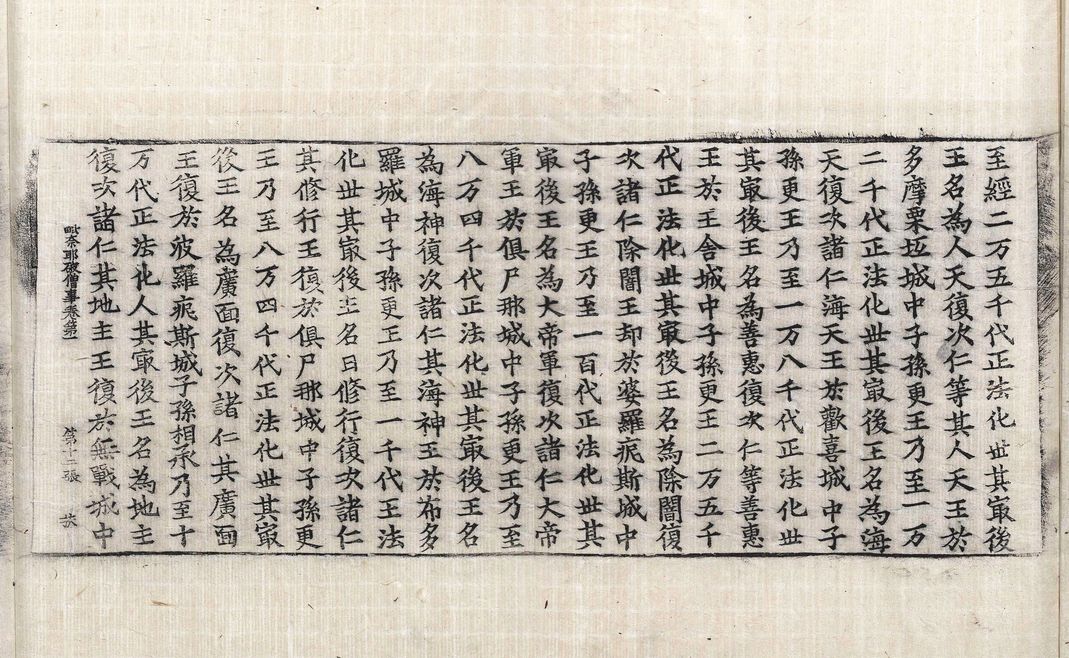 至經二万五千代正法化丗其㝡後
王名為人天復次仁等其人天王於
多摩栗坻城中子孫更王乃至一万
二千代正法化丗其㝡後王名為海
天復次諸仁海天王於歡喜城中子
孫更王乃至一万八千代正法化丗
其㝡後王名為善惠復次仁等善惠
王於王舍城中子孫更王二万五千
代正法化丗其㝡後王名為除闇復
次諸仁除闇王却於婆羅痆斯城中
子孫更王乃至一百代正法化丗其
㝡後王名為大帝軍復次諸仁大帝
軍王於俱尸那城中子孫更王乃至
八万四千代正法化丗其㝡後王名
為海神復次諸仁其海神王於布多
羅城中子孫更王乃至一千代王法
化丗其㝡後王名曰修行復次諸仁
其修行王復於俱尸那城中子孫更
王乃至八万四千代正法化丗其㝡
後王名為廣面復次諸仁其廣面
王復於波羅痆斯城子孫相承乃至十
万代正法化人其㝡後王名為地主
復次諸仁其地主王復於無戰城中
毗奈耶破僧事卷第一 第十二張